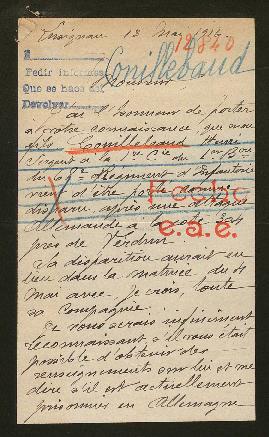 13 Mai 1916
12840
Conillebaud
Pedir informes
Que se haga así
Devolver
Monsieur
J'ai l'honneur de porter
à votre connaissance que mon
fils Conillebaud Henri
Sergent à la 1re Cie du 1er Bon
du Régiment d'Infanterie
vient d'être porté comme
disparu après une attaque
Allemande à la cote 304
près de Verdun
Sa disparition aurait eu
lieu dans la matinée du
Mai avec je crois toute
sa Compagnie.
Je vous serais infiniment
reconnaissant s'il vous était
possible d'obtenir des
renseignements sur lui et me
dire s'il est actuellement
prisonnier en Allemagne